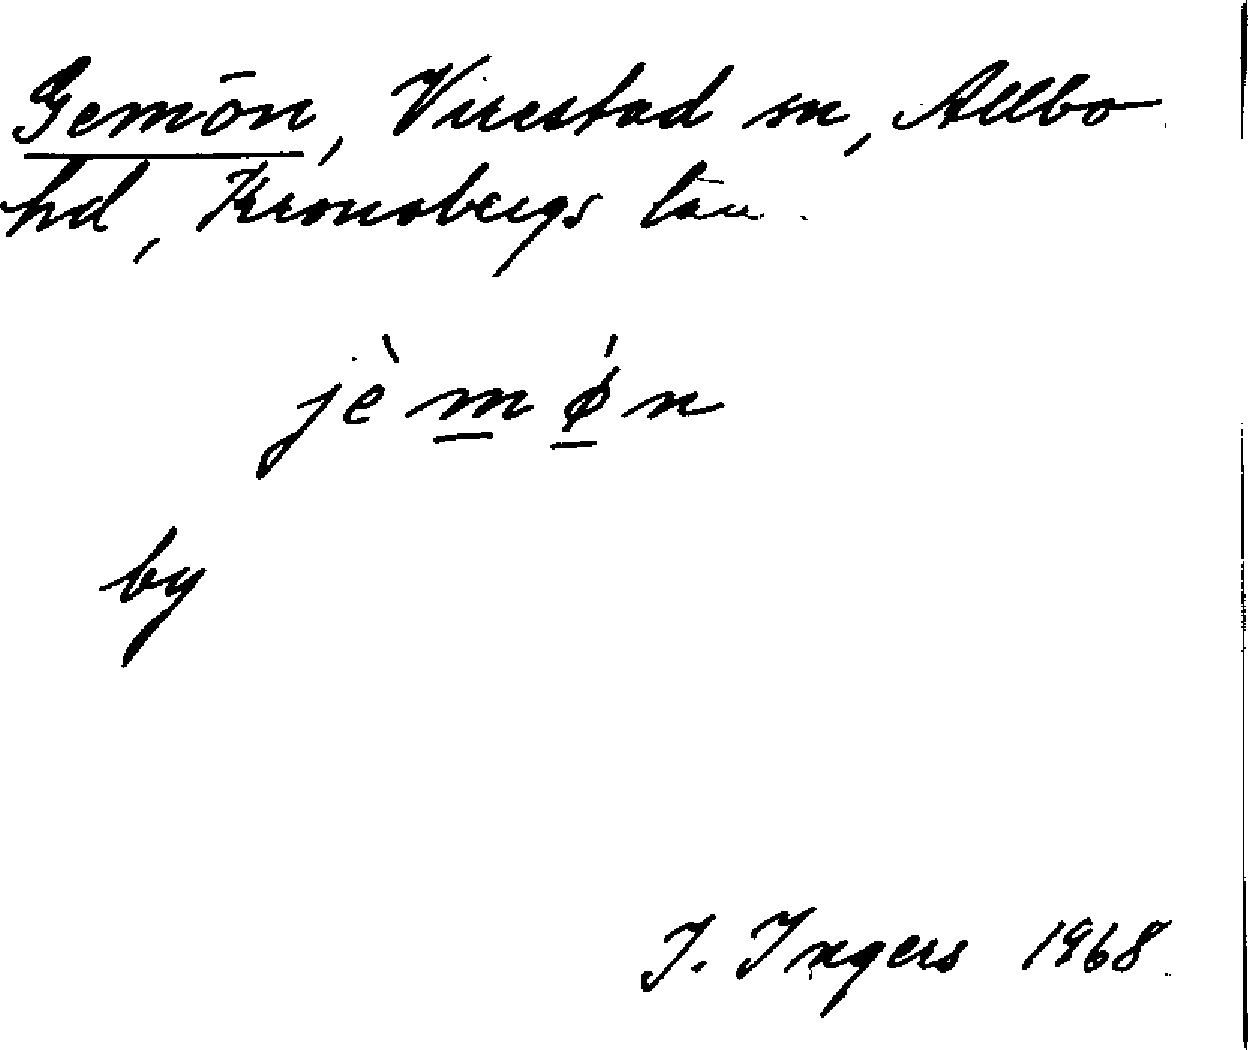 Gemön, Virestad sn, Allbo
hd, Kronobergs län.
jèmǿn
by
I. Ingers 1968.